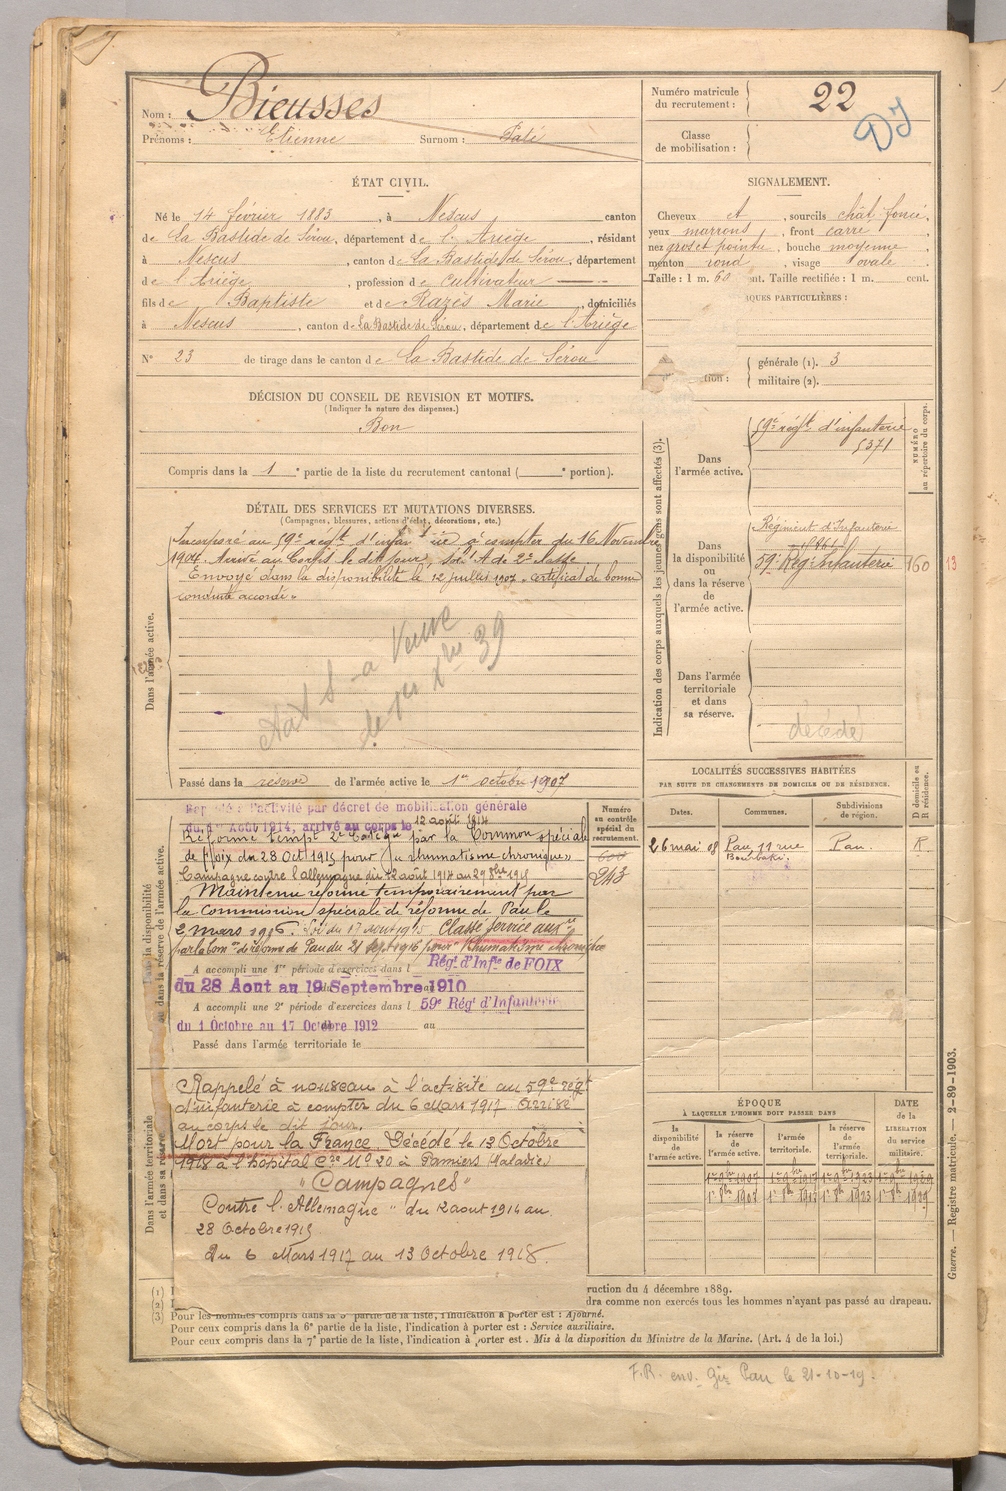 Nom : Bieusses
Prénoms : Etienne Surnom : Paté
Numéro matricule du recrutement : 22
DJ
Classe de mobilisation :
ÉTAT CIVIL.
Né le 14 février 1883, à Nescus canton
de La Bastide de Sérou, département de l'Ariège, résidant
à Nescus, canton de La Bastide de Sérou, département
de l'Ariège, profession de cultivateur
fils de Baptiste et de Razès Marie, domiciliés
à Nescus, canton de La Bastide de Sérou, département de l'Ariège
N° 23 de tirage dans le canton de La Bastide de Sérou
SIGNALEMENT.
Cheveux et, sourcils chât foncé,
yeux marrons, front carré
nez gros et pointu, bouche moyenne
menton rond, visage ovale
Taille : 1 m. 60 ent. Taille rectifiée : 1 m. cent.
IQUES PARTICULIÈRES :
tion : générale (1). 3
militaire (2).
DÉCISION DU CONSEIL DE REVISION ET MOTIFS.
(Indiquer la nature des dispenses.)
Bon
Compris dans la 1e partie de la liste du recrutement cantonal ( e portion).
DÉTAIL DES SERVICES ET MUTATIONS DIVERSES.
(Campagnes, blessures, actions d'éclat, décorations, etc.)
Dans l'armée active.
Incorporé au 59e régt d'infanterie à compter du 16 Novembre
1904. Arrivé au Corps le dit jour, soldat de 2e classe.
Envoyé dans la disponibilité le 12 juillet 1907 - certificat de bonne
conduite accordé.
a Veuve
39
Passé dans la réserve de l'armée active le 1er octobre 1907
Indication des corps auxquels les jeunes gens sont affectés (3).
Dans l'armée active.
59e régt d'infanterie
5371
NUMÉRO au répertoire du corps.
Dans la disponibilité ou dans la réserve de l'armée active.
Régiment d'Infanterie
59e Rég Infanterie 160 13
Dans l'armée territoriale et dans sa réserve.
décédé
LOCALITÉS SUCCESSIVES HABITÉES
PAR SUITE DE CHANGEMENTS DE DOMICILE OU DE RÉSIDENCE.
D domicile ou R résidence.
Dates. Communes. Subdivisions de région.
26 mai 08 Pau, 11 rue Bourbaki. Pau. R.
Dans la disponibilité ou dans la réserve de l'armée active.
Numéro au contrôle spécial du recrutement.
600
243
Rappelé à l'activité par décret de mobilisation générale
du 1er Août 1914, arrivé au corps le 12 août 1914
Réformé tempt 2e Catég par la Common spéciale
de Foix du 28 Oct 1915 pour "rhumatisme chronique"
Campagne contre l'allemagne du 12 août 1914 au 29 8bre 1915
Maintenu réformé temporairement par
la Commission spéciale de réforme de Pau le
2 mars 1916. Classé Service aux re
par la Com on de réforme de Pau du 21 sept 1916 pour Rhumatisme chronique
A accompli une 1re période d'exercices dans l Régt d'Infie de FOIX
du 28 Aout au 19 Septembre 1910
A accompli une 2e période d'exercices dans l 59e Régt d'Infanterie
du 1 Octobre au 17 Octobre 1912 au
Passé dans l'armée territoriale le
Dans l'armée territoriale et dans sa réserve.
Rappelé à nouveau à l'activité au 59e régt
d'infanterie à compter du 6 Mars 1917. Arrivé
au corps le dit jour.
Mort pour la France. Décédé le 13 Octobre
1918 à l'hôpital Cre No 20 à Pamiers (Maladie)
"Campagnes"
Contre l'Allemagne " du 12 aout 1914 au
28 Octobre 1915
Du 6 Mars 1917 au 13 Octobre 1918.
ÉPOQUE
À LAQUELLE L'HOMME DOIT PASSER DANS
DATE de la LIBÉRATION du service militaire.
la disponibilité de l'armée active. la réserve de l'armée active. l'armée territoriale. la réserve de l'armée territoriale.
1er 8bre 1907 1er 8bre 1917 1er 8bre 1923 1er 8bre 1929
(1)
(2)
(3)
ruction du 4 décembre 1889.
dra comme non exercés tous les hommes n'ayant pas passé au drapeau.
Pour les hommes compris dans la 5e partie de la liste, l'indication à porter est : Ajourné.
Pour ceux compris dans la 6e partie de la liste, l'indication à porter est : Service auxiliaire.
Pour ceux compris dans la 7e partie de la liste, l'indication à porter est . Mis à la disposition du Ministre de la Marine. (Art. 4 de la loi.)
Guerre. — Registre matricule. — 2-89-1903.
F.R. env. Pau le 21-10-19.